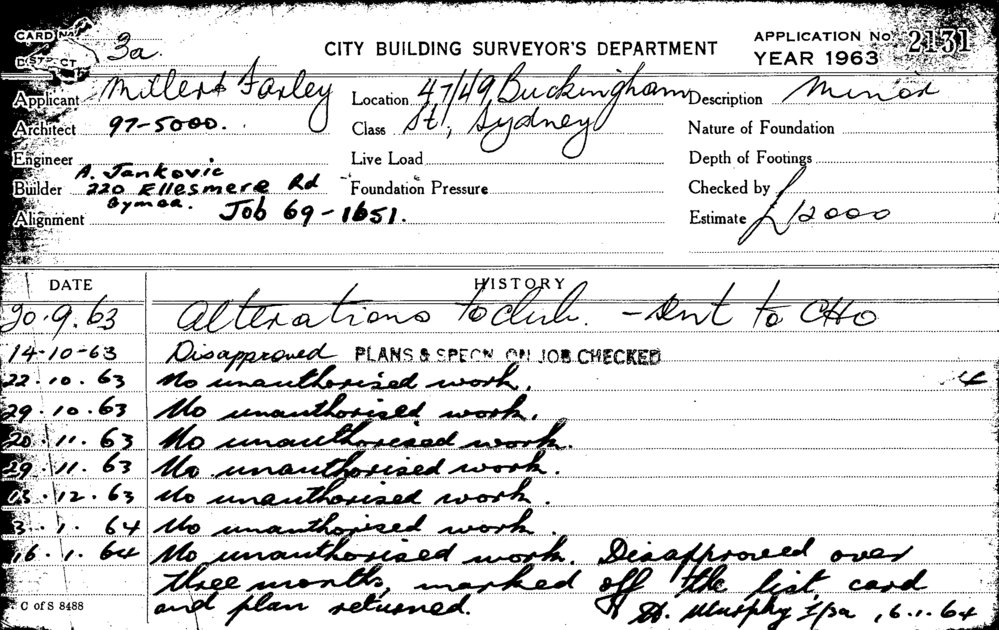 CARD No. 3a. CITY BUILDING SURVEYOR'S DEPARTMENT APPLICATION No. 2131
DISTRICT YEAR 1963
Applicant Millers Farley Location 47/49 Buckingham Description Minor
Architect 97-5000. Class St, Sydney Nature of Foundation
Engineer Live Load Depth of Footings
A. Jankovic
Builder 220 Ellesmere Rd Foundation Pressure Checked by
Gymea. Job 69-1651.
Alignment Estimate £12000
DATE HISTORY
20.9.63 Alterations to club. - Sent to CHO
14-10-63 Disapproved PLANS & SPECN. ON JOB CHECKED
22.10.63 No unauthorised work.
29.10.63 No unauthorised work.
20.11.63 No unauthorised work.
29.11.63 No unauthorised work.
13.12.63 No unauthorised work.
3.1.64 No unauthorised work.
16.1.64 No unauthorised work. Disapproved over
three months, marked off the list, card
and plan returned. Murphy 16.1.64
C of S 8488